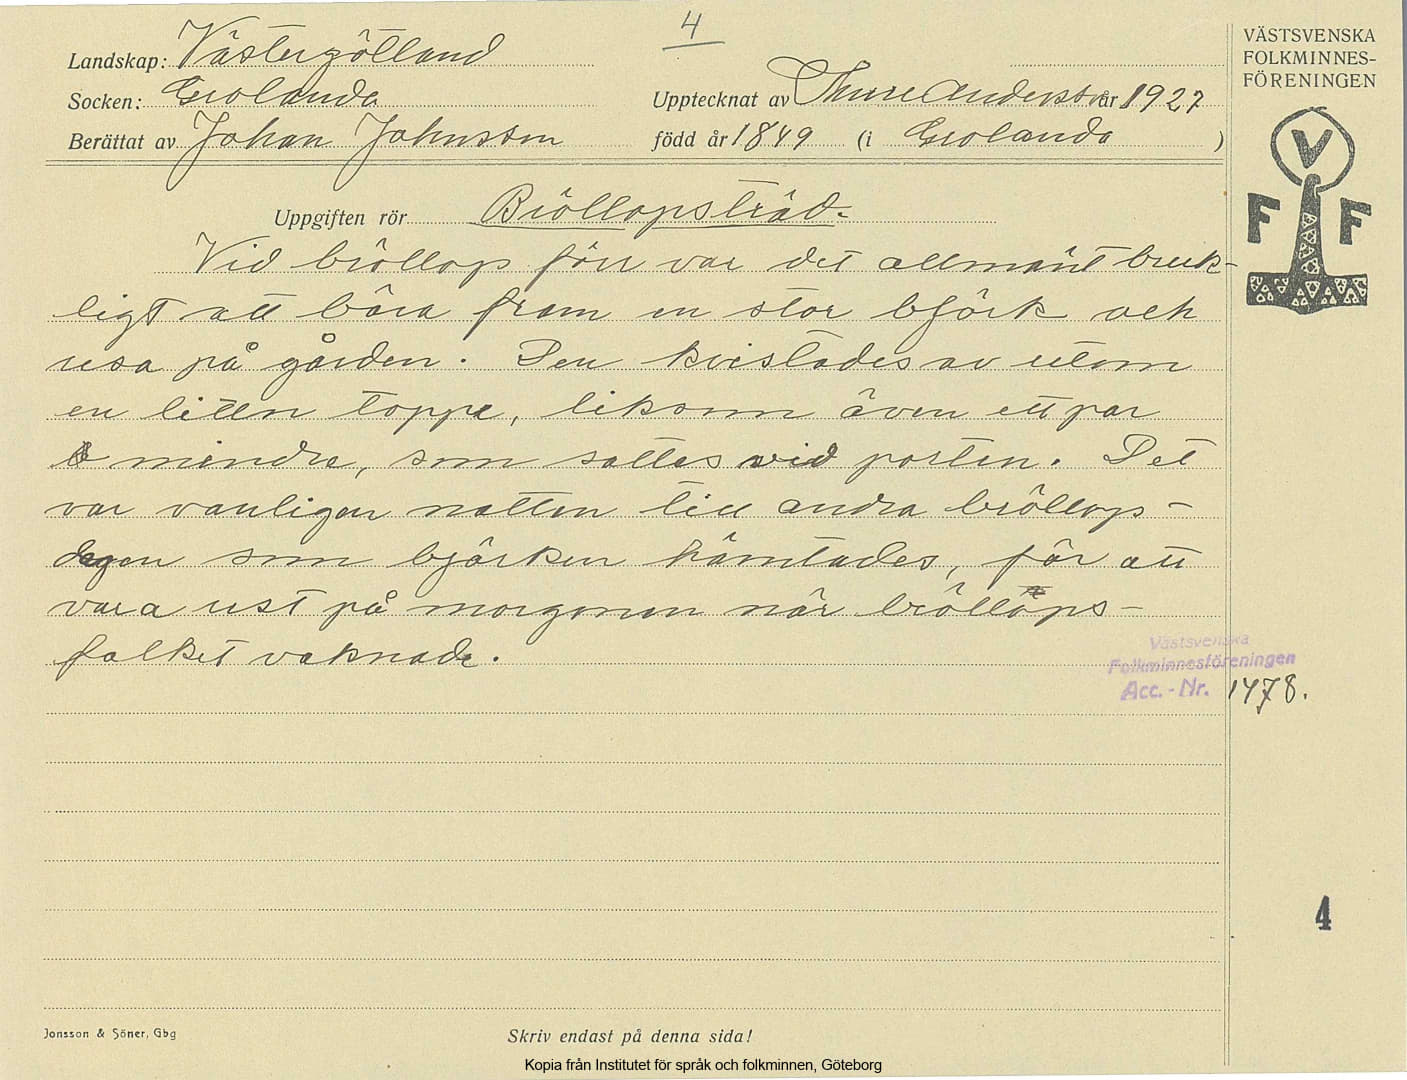 4
Landskap: Västergötland
Socken: Grolanda
Upptecknat av Thure Andersson år 1927
Berättat av Johan Johansson född år 1849 (i Grolanda )
Uppgiften rör Bröllopsträd.
Vid bröllop förr var det allmänt bruk-
ligt att bära fram en stor björk och
resa på gården. Den kvistades av utom
en liten toppe, liksom även ett par
mindre, som sattes vid porten. Det
var vanligen natten till andra bröllops-
dagen som björken hämtades, för att
vara rest på morgonen när bröllops-
folket vaknade.
VÄSTSVENSKA
FOLKMINNES-
FÖRENINGEN
V
F F
Västsvenska
Folkminnesföreningen
Acc. - Nr. 1478.
4
Jonsson & Söner, Gbg
Skriv endast på denna sida!
Kopia från Institutet för språk och folkminnen, Göteborg